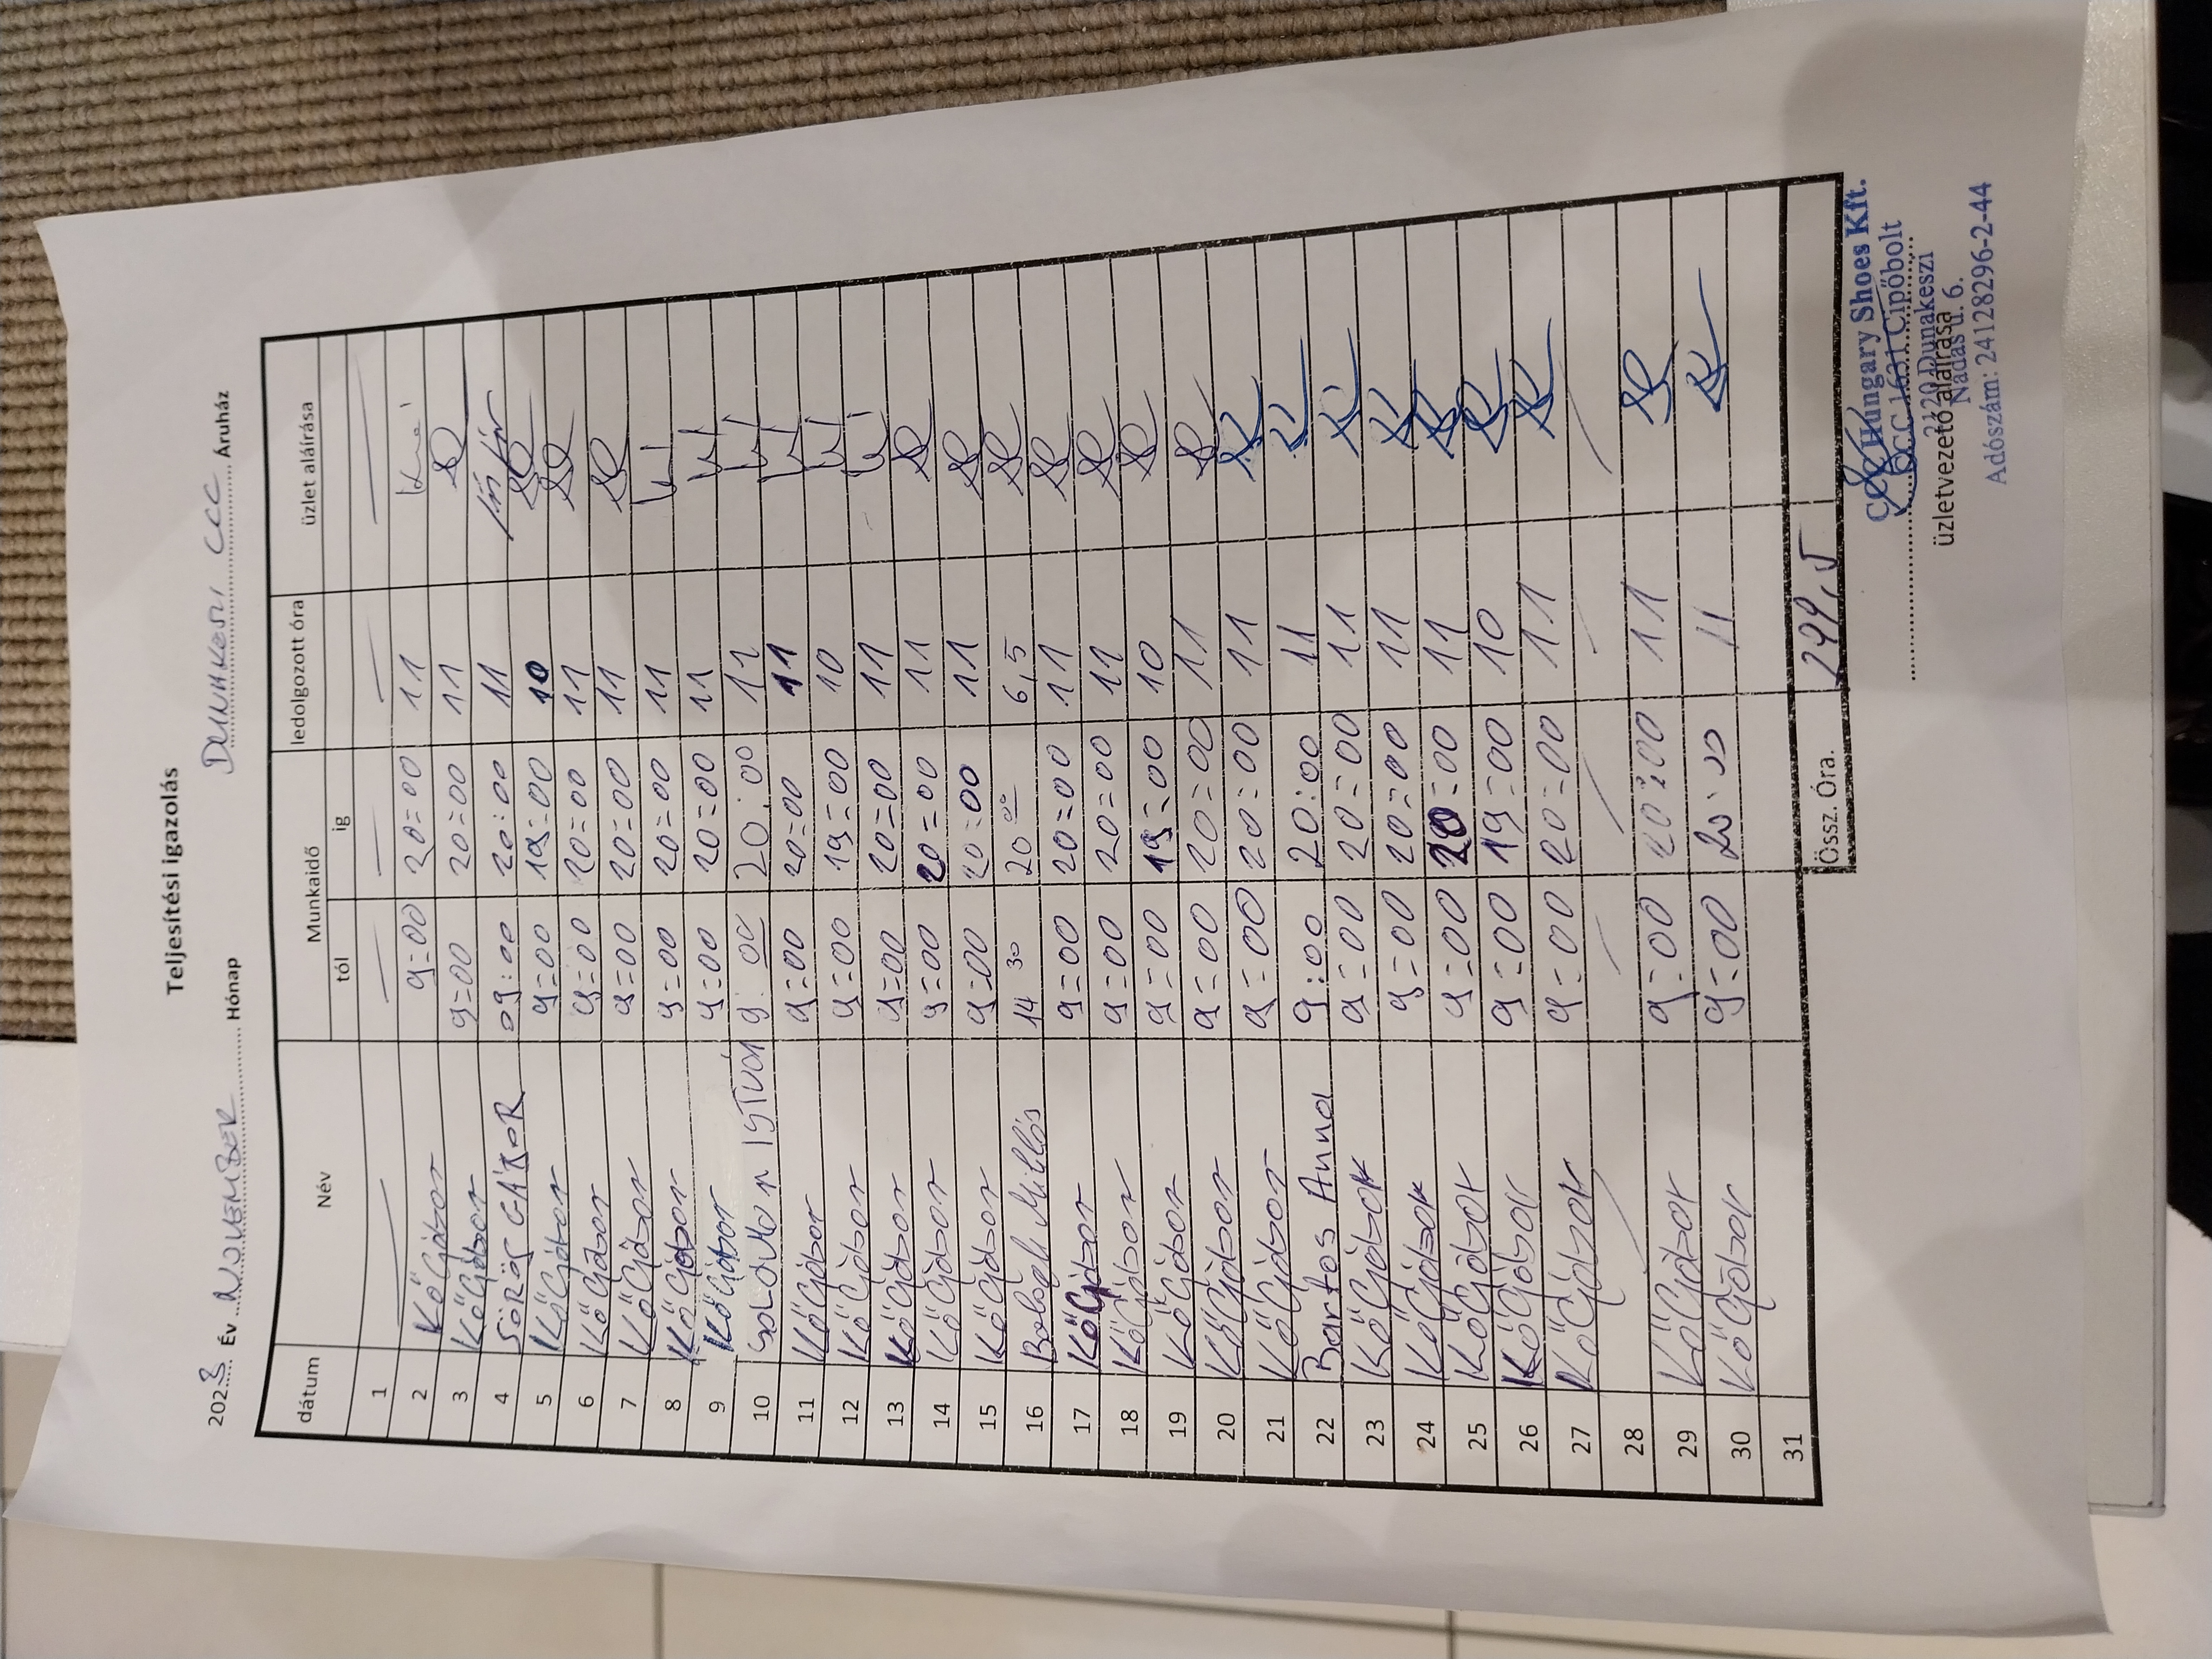 Teljesítési igazolás
2023 Év NOVEMBER Hónap DUNAKESZI CCC Áruház
dátum Név Munkaidő ledolgozott óra üzlet aláírása
tól ig
1
2 Kő Gábor 9=00 20=00 11
3 Kő Gábor 9=00 20=00 11
4 SÖRÖS GÁBOR 09:00 20:00 11
5 Kő Gábor 9=00 19=00 10
6 Kő Gábor 9=00 20=00 11
7 Kő Gábor 9=00 20=00 11
8 Kő Gábor 9=00 20=00 11
9 Kő Gábor 9=00 20=00 11
10 SOLOMON ISTVÁN 9:00 20:00 11
11 Kő Gábor 9=00 20=00 11
12 Kő Gábor 9=00 19=00 10
13 Kő Gábor 9=00 20=00 11
14 Kő Gábor 9=00 20=00 11
15 Kő Gábor 9=00 20=00 11
16 Balogh Miklós 14 30 20 00 6,5
17 Kő Gábor 9=00 20=00 11
18 Kő Gábor 9=00 20=00 11
19 Kő Gábor 9=00 19=00 10
20 Kő Gábor 9=00 20=00 11
21 Kő Gábor 9=00 20=00 11
22 Bartos Anna 9:00 20:00 11
23 Kő Gábor 9=00 20=00 11
24 Kő Gábor 9=00 20=00 11
25 Kő Gábor 9=00 20=00 11
26 Kő Gábor 9=00 19=00 10
27 Kő Gábor 9=00 20=00 11
28
29 Kő Gábor 9=00 20:00 11
30 Kő Gábor 9=00 20:00 11
31
Össz. Óra. 299,5
Hungary Shoes Kft.
CCC 1631 Cipőbolt
2120 Dunakeszi
üzletvezető aláírása
Nádas u. 6.
Adószám: 24128296-2-44